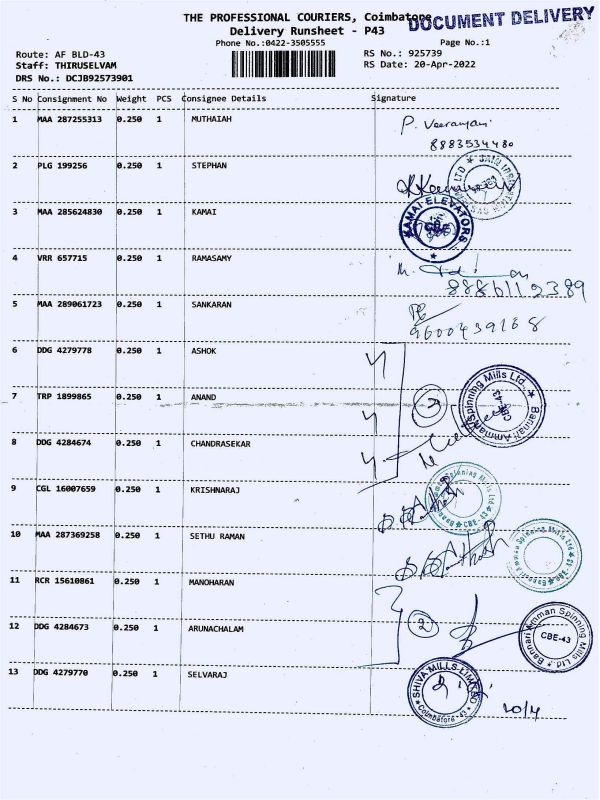 THE PROFESSIONAL COURIERS, Coimbatore
DOCUMENT DELIVERY
Delivery Runsheet - P43
Phone No.:0422-3505555
Page No.:1
Route: AF BLD-43
RS No.: 925739
Staff: THIRUSELVAM
RS Date: 20-Apr-2022
DRS No.: DCJB92573901
S No Consignment No Weight PCS Consignee Details Signature
1 MAA 287255313 0.250 1 MUTHAIAH
8883534480
2 PLG 199256 0.250 1 STEPHAN
3 MAA 285624830 0.250 1 KAMAI
KAMAI ELEVATORS
CBE
4 VRR 657715 0.250 1 RAMASAMY
5 MAA 289061723 0.250 1 SANKARAN
6 DDG 4279778 0.250 1 ASHOK
7 TRP 1899865 0.250 1 ANAND
Bannari Amman Spinning Mills Ltd.,
CBE-43
8 DDG 4284674 0.250 1 CHANDRASEKAR
9 CGL 16007659 0.250 1 KRISHNARAJ
10 MAA 287369258 0.250 1 SETHU RAMAN
11 RCR 15610861 0.250 1 MANOHARAN
12 DDG 4284673 0.250 1 ARUNACHALAM
2
Bannari Amman Spinning Mills Ltd
CBE-43
13 DDG 4279770 0.250 1 SELVARAJ
SHIVA MILLS LIMITED
Coimbatore-43
20/4